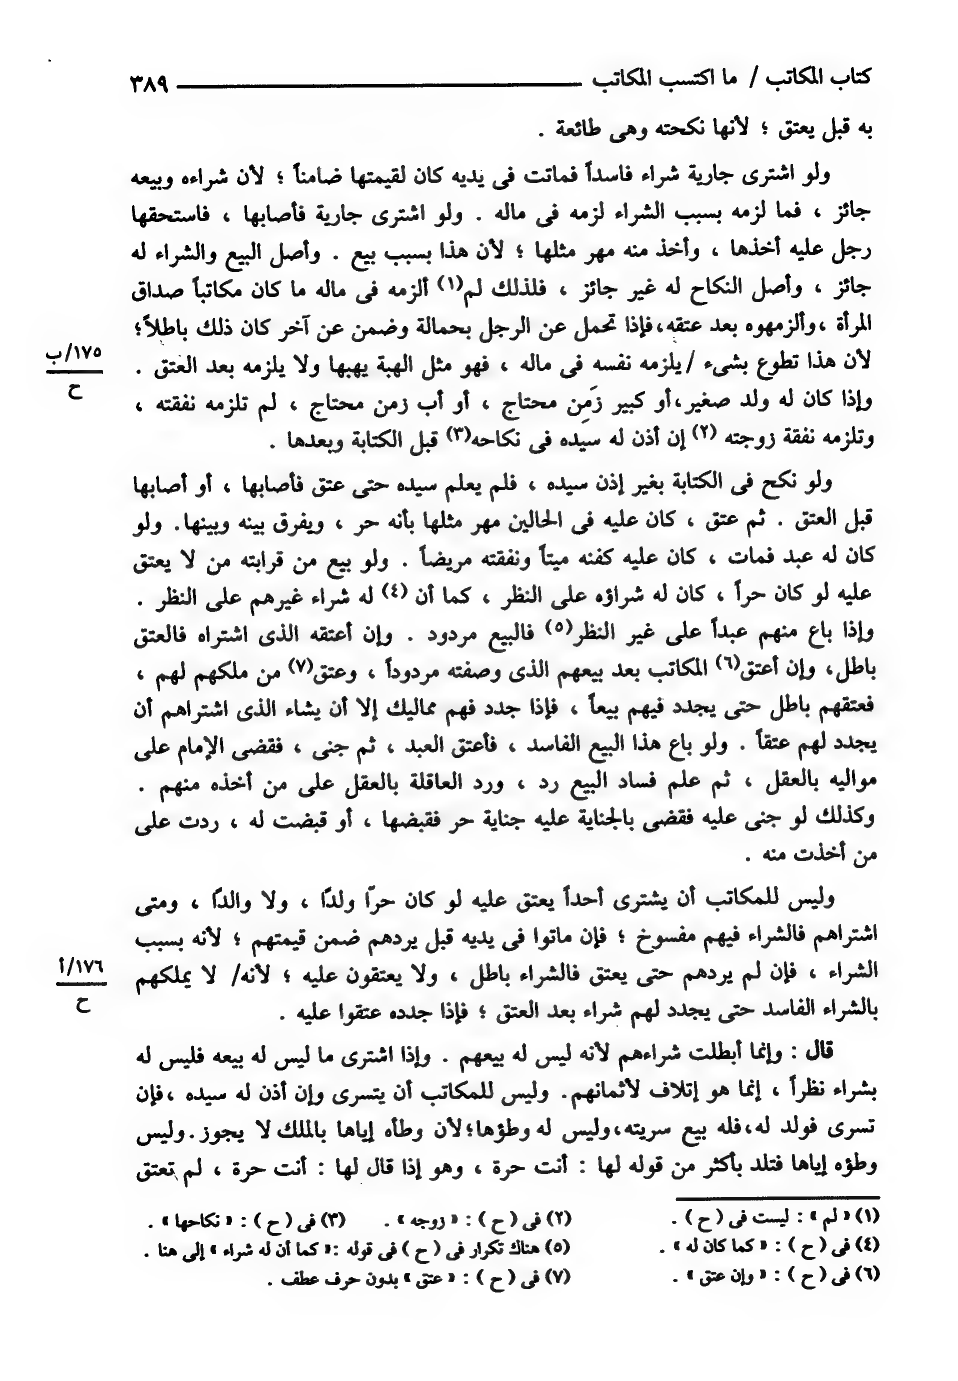 كتاب المكاتب / ما اكتسب المكاتب ٣٨٩
به قبل يعتق ؛ لأنها نكحته وهى طائعة .
ولو اشترى جارية شراء فاسداً فماتت فى يديه كان لقيمتها ضامناً ؛ لأن شراءه وبيعه
جائز ، فما لزمه بسبب الشراء لزمه فى ماله . ولو اشترى جارية فأصابها ، فاستحقها
رجل عليه أخذها ، وأخذ منه مهر مثلها ؛ لأن هذا بسبب بيع . وأصل البيع والشراء له
جائز ، وأصل النكاح له غير جائز ، فلذلك لم(١) ألزمه فى ماله ما كان مكاتباً صداق
المرأة ،وألزمهوه بعد عتقه،فإذا تحمل عن الرجل بحمالة وضمن عن آخر كان ذلك باطلاً؛
لأن هذا تطوع بشىء /يلزمه نفسه فى ماله ، فهو مثل الهبة يهبها ولا يلزمه بعد العتق .
١٧٥/ب
ح
وإذا كان له ولد صغير،أو كبير زَمِن محتاج ، أو أب زمن محتاج ، لم تلزمه نفقته ،
وتلزمه نفقة زوجته (٢) إن أذن له سيده فى نكاحه(٣) قبل الكتابة وبعدها .
ولو نكح فى الكتابة بغير إذن سيده ، فلم يعلم سيده حتى عتق فأصابها ، أو أصابها
قبل العتق . ثم عتق ، كان عليه فى الحالين مهر مثلها بأنه حر ، ويفرق بينه وبينها. ولو
كان له عبد فمات ، كان عليه كفنه ميتاً ونفقته مريضاً . ولو بيع من قرابته من لا يعتق
عليه لو كان حراً ، كان له شراؤه على النظر ، كما أن (٤) له شراء غيرهم على النظر .
وإذا باع منهم عبداً على غير النظر(٥) فالبيع مردود . وإن أعتقه الذى اشتراه فالعتق
باطل، وإن أعتق(٦) المكاتب بعد بيعهم الذى وصفته مردوداً ، وعتق(٧) من ملكهم لهم ،
فعتقهم باطل حتى يجدد فيهم بيعاً ، فإذا جدد فهم مماليك إلا أن يشاء الذى اشتراهم أن
يجدد لهم عتقاً . ولو باع هذا البيع الفاسد ، فأعتق العبد ، ثم جنى ، فقضى الإمام على
مواليه بالعقل ، ثم علم فساد البيع رد ، ورد العاقلة بالعقل على من أخذه منهم .
وكذلك لو جنى عليه فقضى بالجناية عليه جناية حر فقبضها ، أو قبضت له ، ردت على
من أخذت منه .
وليس للمكاتب أن يشترى أحداً يعتق عليه لو كان حرّا ولدًا ، ولا والدًا ، ومتى
اشتراهم فالشراء فيهم مفسوخ ؛ فإن ماتوا فى يديه قبل يردهم ضمن قيمتهم ؛ لأنه بسبب
الشراء ، فإن لم يردهم حتى يعتق فالشراء باطل ، ولا يعتقون عليه ؛ لأنه/ لا يملكهم
١٧٦/أ
ح
بالشراء الفاسد حتى يجدد لهم شراء بعد العتق ؛ فإذا جدده عتقوا عليه .
قال : وإنما أبطلت شراءهم لأنه ليس له بيعهم . وإذا اشترى ما ليس له بيعه فليس له
بشراء نظراً ، إنما هو إتلاف لأثمانهم. وليس للمكاتب أن يتسرى وإن أذن له سيده ،فإن
تسرى فولد له،فله بيع سريته،وليس له وطؤها؛لأن وطأه إياها بالملك لا يجوز.وليس
وطؤه إياها فتلد بأكثر من قوله لها : أنت حرة ، وهو إذا قال لها : أنت حرة ، لم تعتق
(١) « لم » : ليست فى ( ح ) . (٢) فى ( ح ) : « زوجه » . (٣) فى ( ح ) : « نكاحها » .
(٤) فى ( ح ) : « كما كان له » . (٥) هناك تكرار فى ( ح ) فى قوله :« كما أن له شراء » إلى هنا .
(٦) فى ( ح ) : « وإن عتق » . (٧) فى ( ح ) : « عتق » بدون حرف عطف .